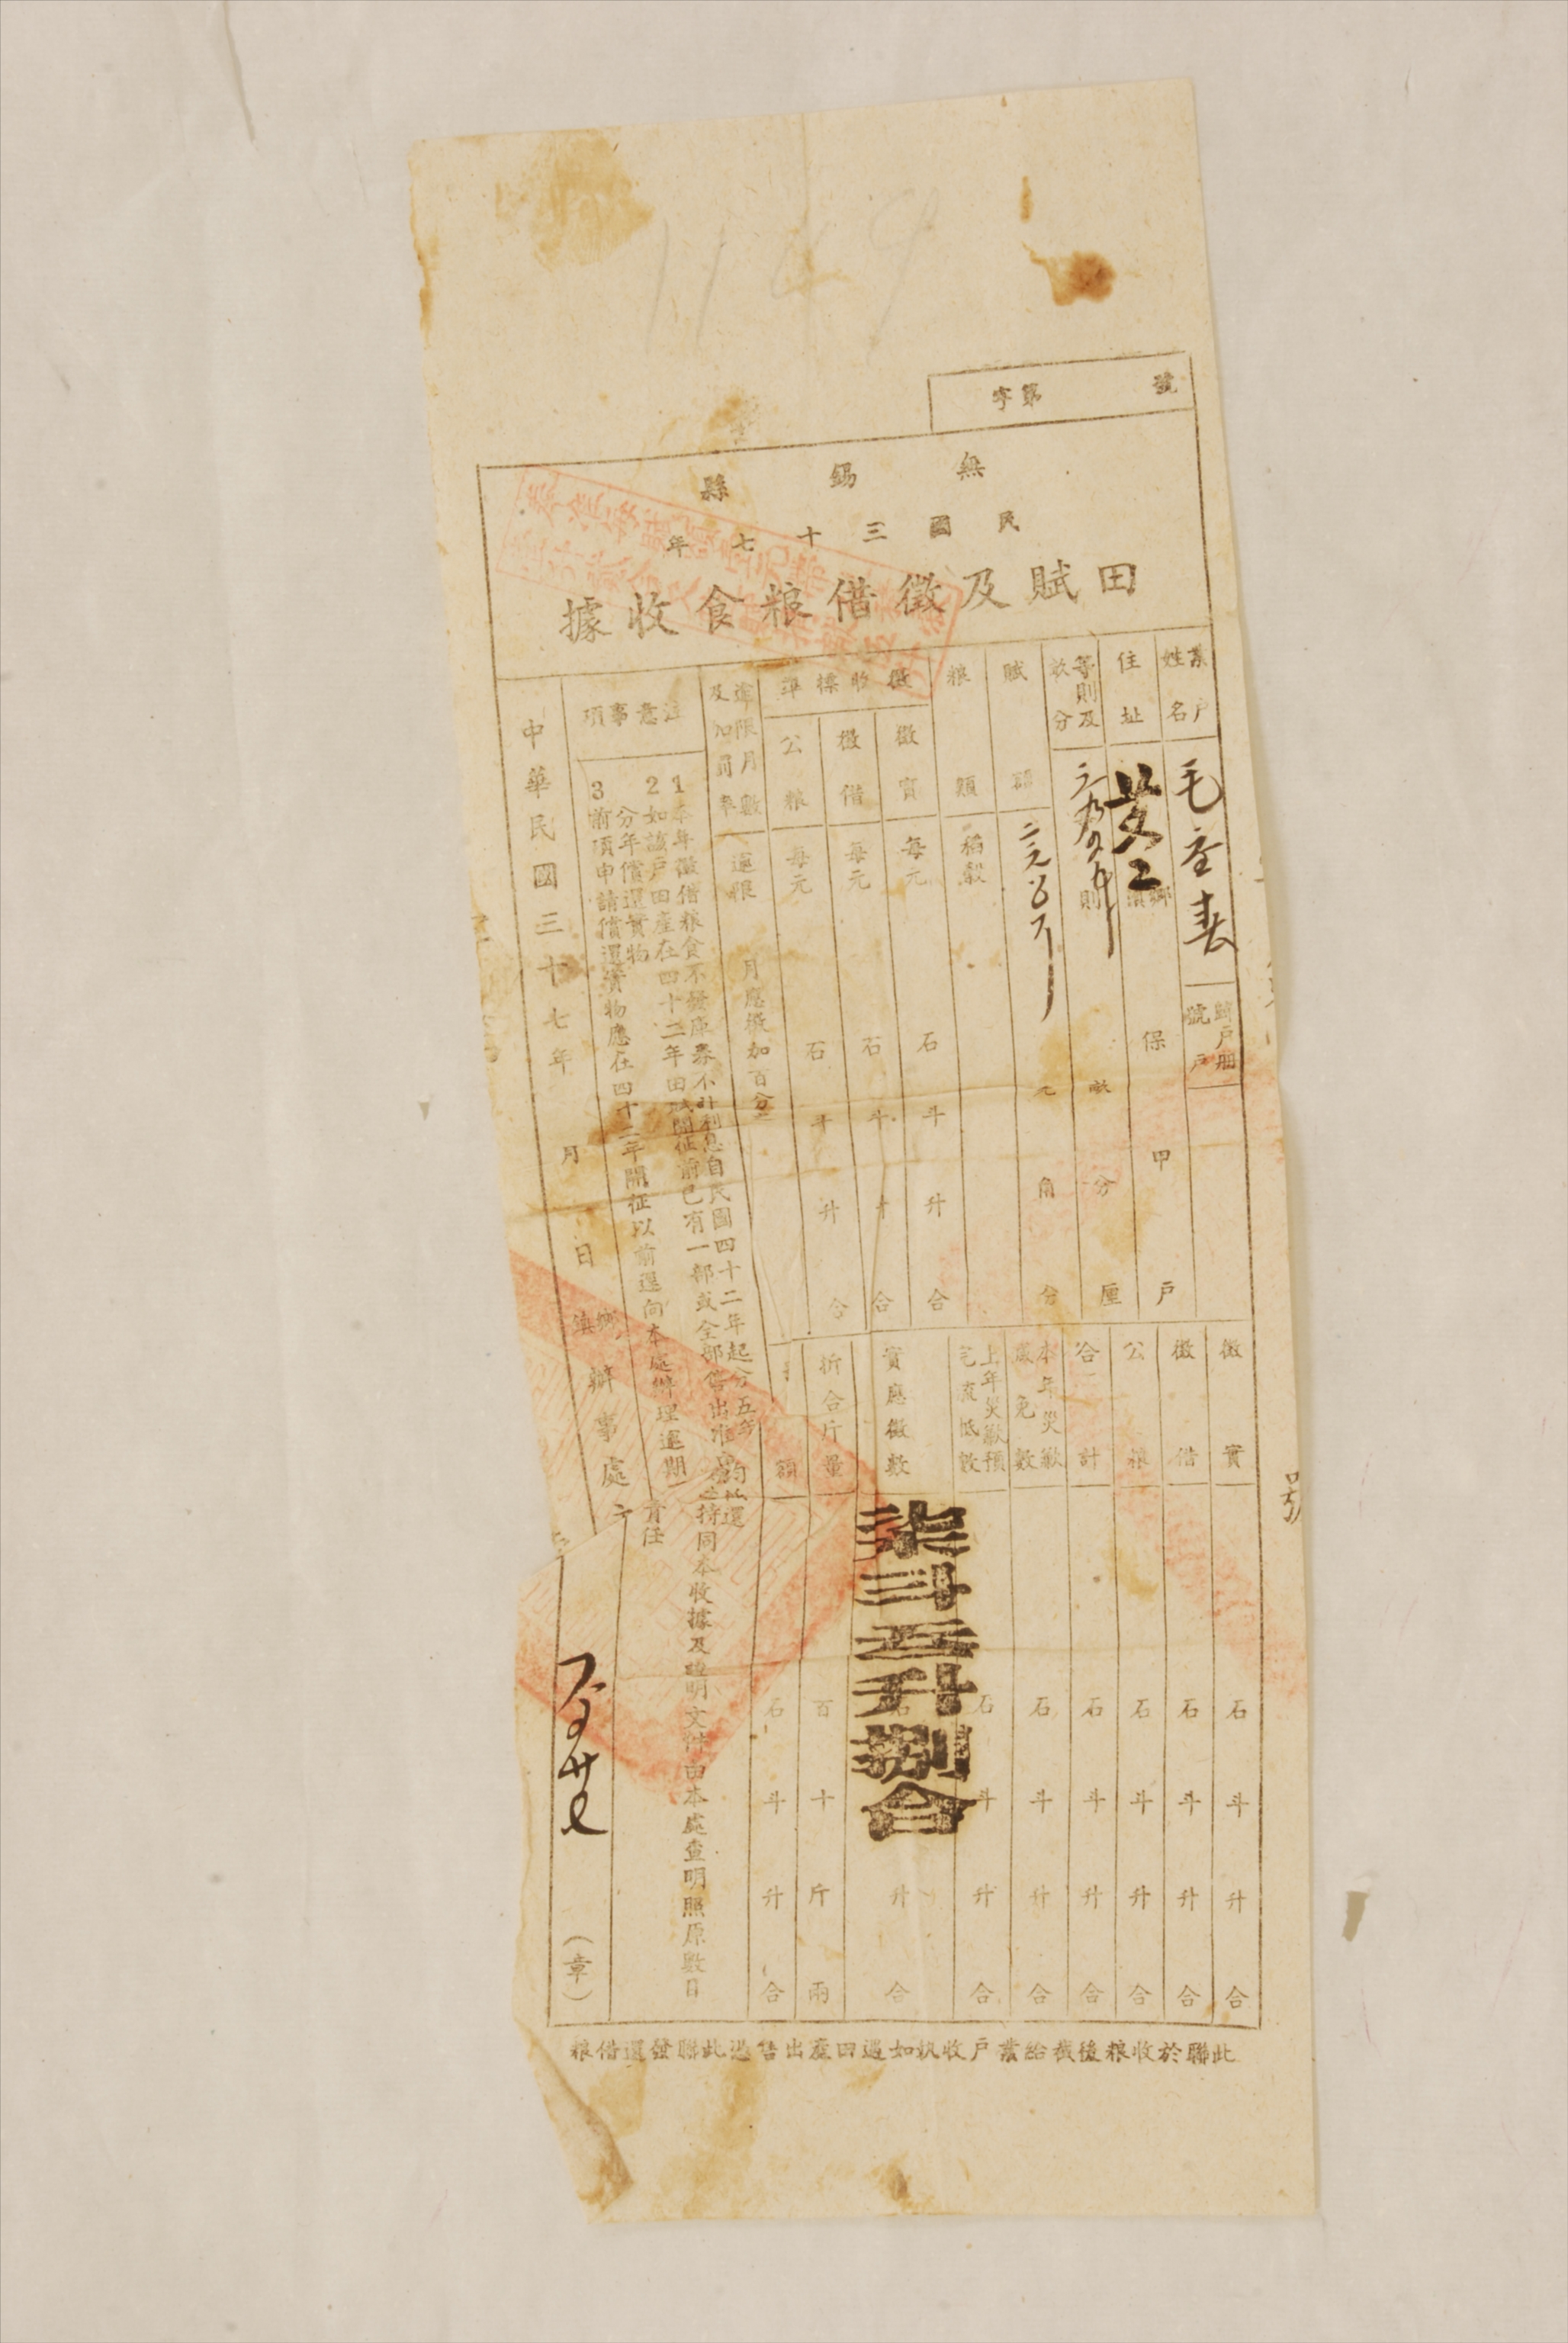 1149
字第 號
無錫縣
民國三十七年
田賦及徵借粮食收據
業戶姓名
毛
春
歸戶冊號
戶
住址
鄉鎮
保
甲
戶
等則及畝分
則
畝
分
厘
賦額
元
角
分
粮額
稻穀
徵收標準
徵實
每元
石
斗
升
合
徵借
每元
石
斗
升
合
公粮
每元
石
斗
升
合
逾限月數及加罰率
逾限 月應徵加百分
徵實
石
斗
升
合
徵借
石
斗
升
合
公粮
石
斗
升
合
合計
石
斗
升
合
本年災歉減免數
石
斗
升
合
上年災歉預完流抵數
石
斗
升
合
實應徵數
柒斗三升捌合
升
合
折合斤量
百
十
斤
兩
額
石
斗
升
合
注意事項
1本年徵借粮食不發庫券不計利息自民國四十二年起分五年均以還
2如該戶田產在四十二年田賦開征前已有一部或全部售出准
持同本收據及證明文件由本處查明照原數目
分年償還實物
3前項申請償還實物應在四十二年開征以前逕向本處辦理逾期
責任
中華民國三十七年 月 日
鄉鎮辦事處主
（章）
此聯於收粮後截給業戶收执如遇田產出售憑此聯發還借粮
號